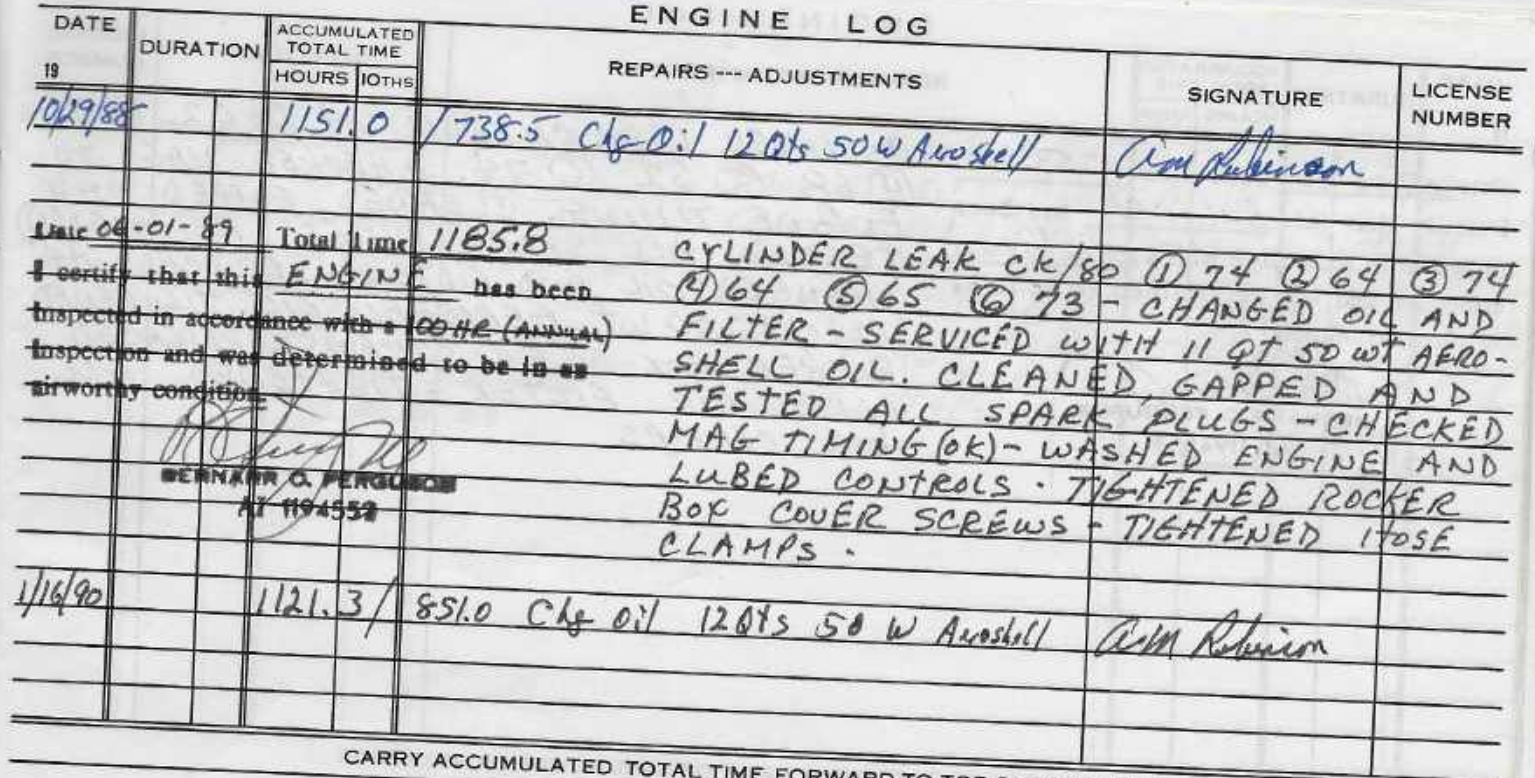 ENGINE LOG
DATE
19
DURATION
ACCUMULATED
TOTAL TIME
HOURS 10THS
REPAIRS --- ADJUSTMENTS
SIGNATURE
LICENSE
NUMBER
10/29/88 1151.0 / 738.5 Chg Oil 12 Qts 50 W Aeroshell am Robinson
Date 06-01-89 Total Time 1185.8
I certify that this ENGINE has been
Inspected in accordance with a 100 HR (ANNUAL)
Inspection and was determined to be in an
airworthy condition.
BERNARR O. FERGUSON
AI 1194552
CYLINDER LEAK CK/80 ① 74 ② 64 ③ 74
④ 64 ⑤ 65 ⑥ 73 - CHANGED OIL AND
FILTER - SERVICED WITH 11 QT 50 WT AERO-
SHELL OIL. CLEANED, GAPPED AND
TESTED ALL SPARK PLUGS - CHECKED
MAG TIMING (OK) - WASHED ENGINE AND
LUBED CONTROLS. TIGHTENED ROCKER
BOX COVER SCREWS - TIGHTENED HOSE
CLAMPS.
1/16/90 1121.3 / 851.0 Chg Oil 12 Qts 50 W Aeroshell am Robinson
CARRY ACCUMULATED TOTAL TIME FORWARD TO